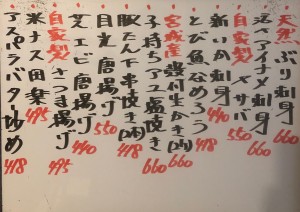 天然 ぶり刺身 660
活〆アイナメ刺身 660
自家製 〆サバ 550
新いか刺身 440
とび魚なめろう 418
宮城産 殻付生かき(1ヶ) 660
子持ちアユ塩焼き 660
豚たん串焼き(2本) 418
目光唐揚げ 550
芝エビ唐揚げ 440
自家製 さつま揚げ 495
米ナス田楽 495
アスパラバター炒め 418